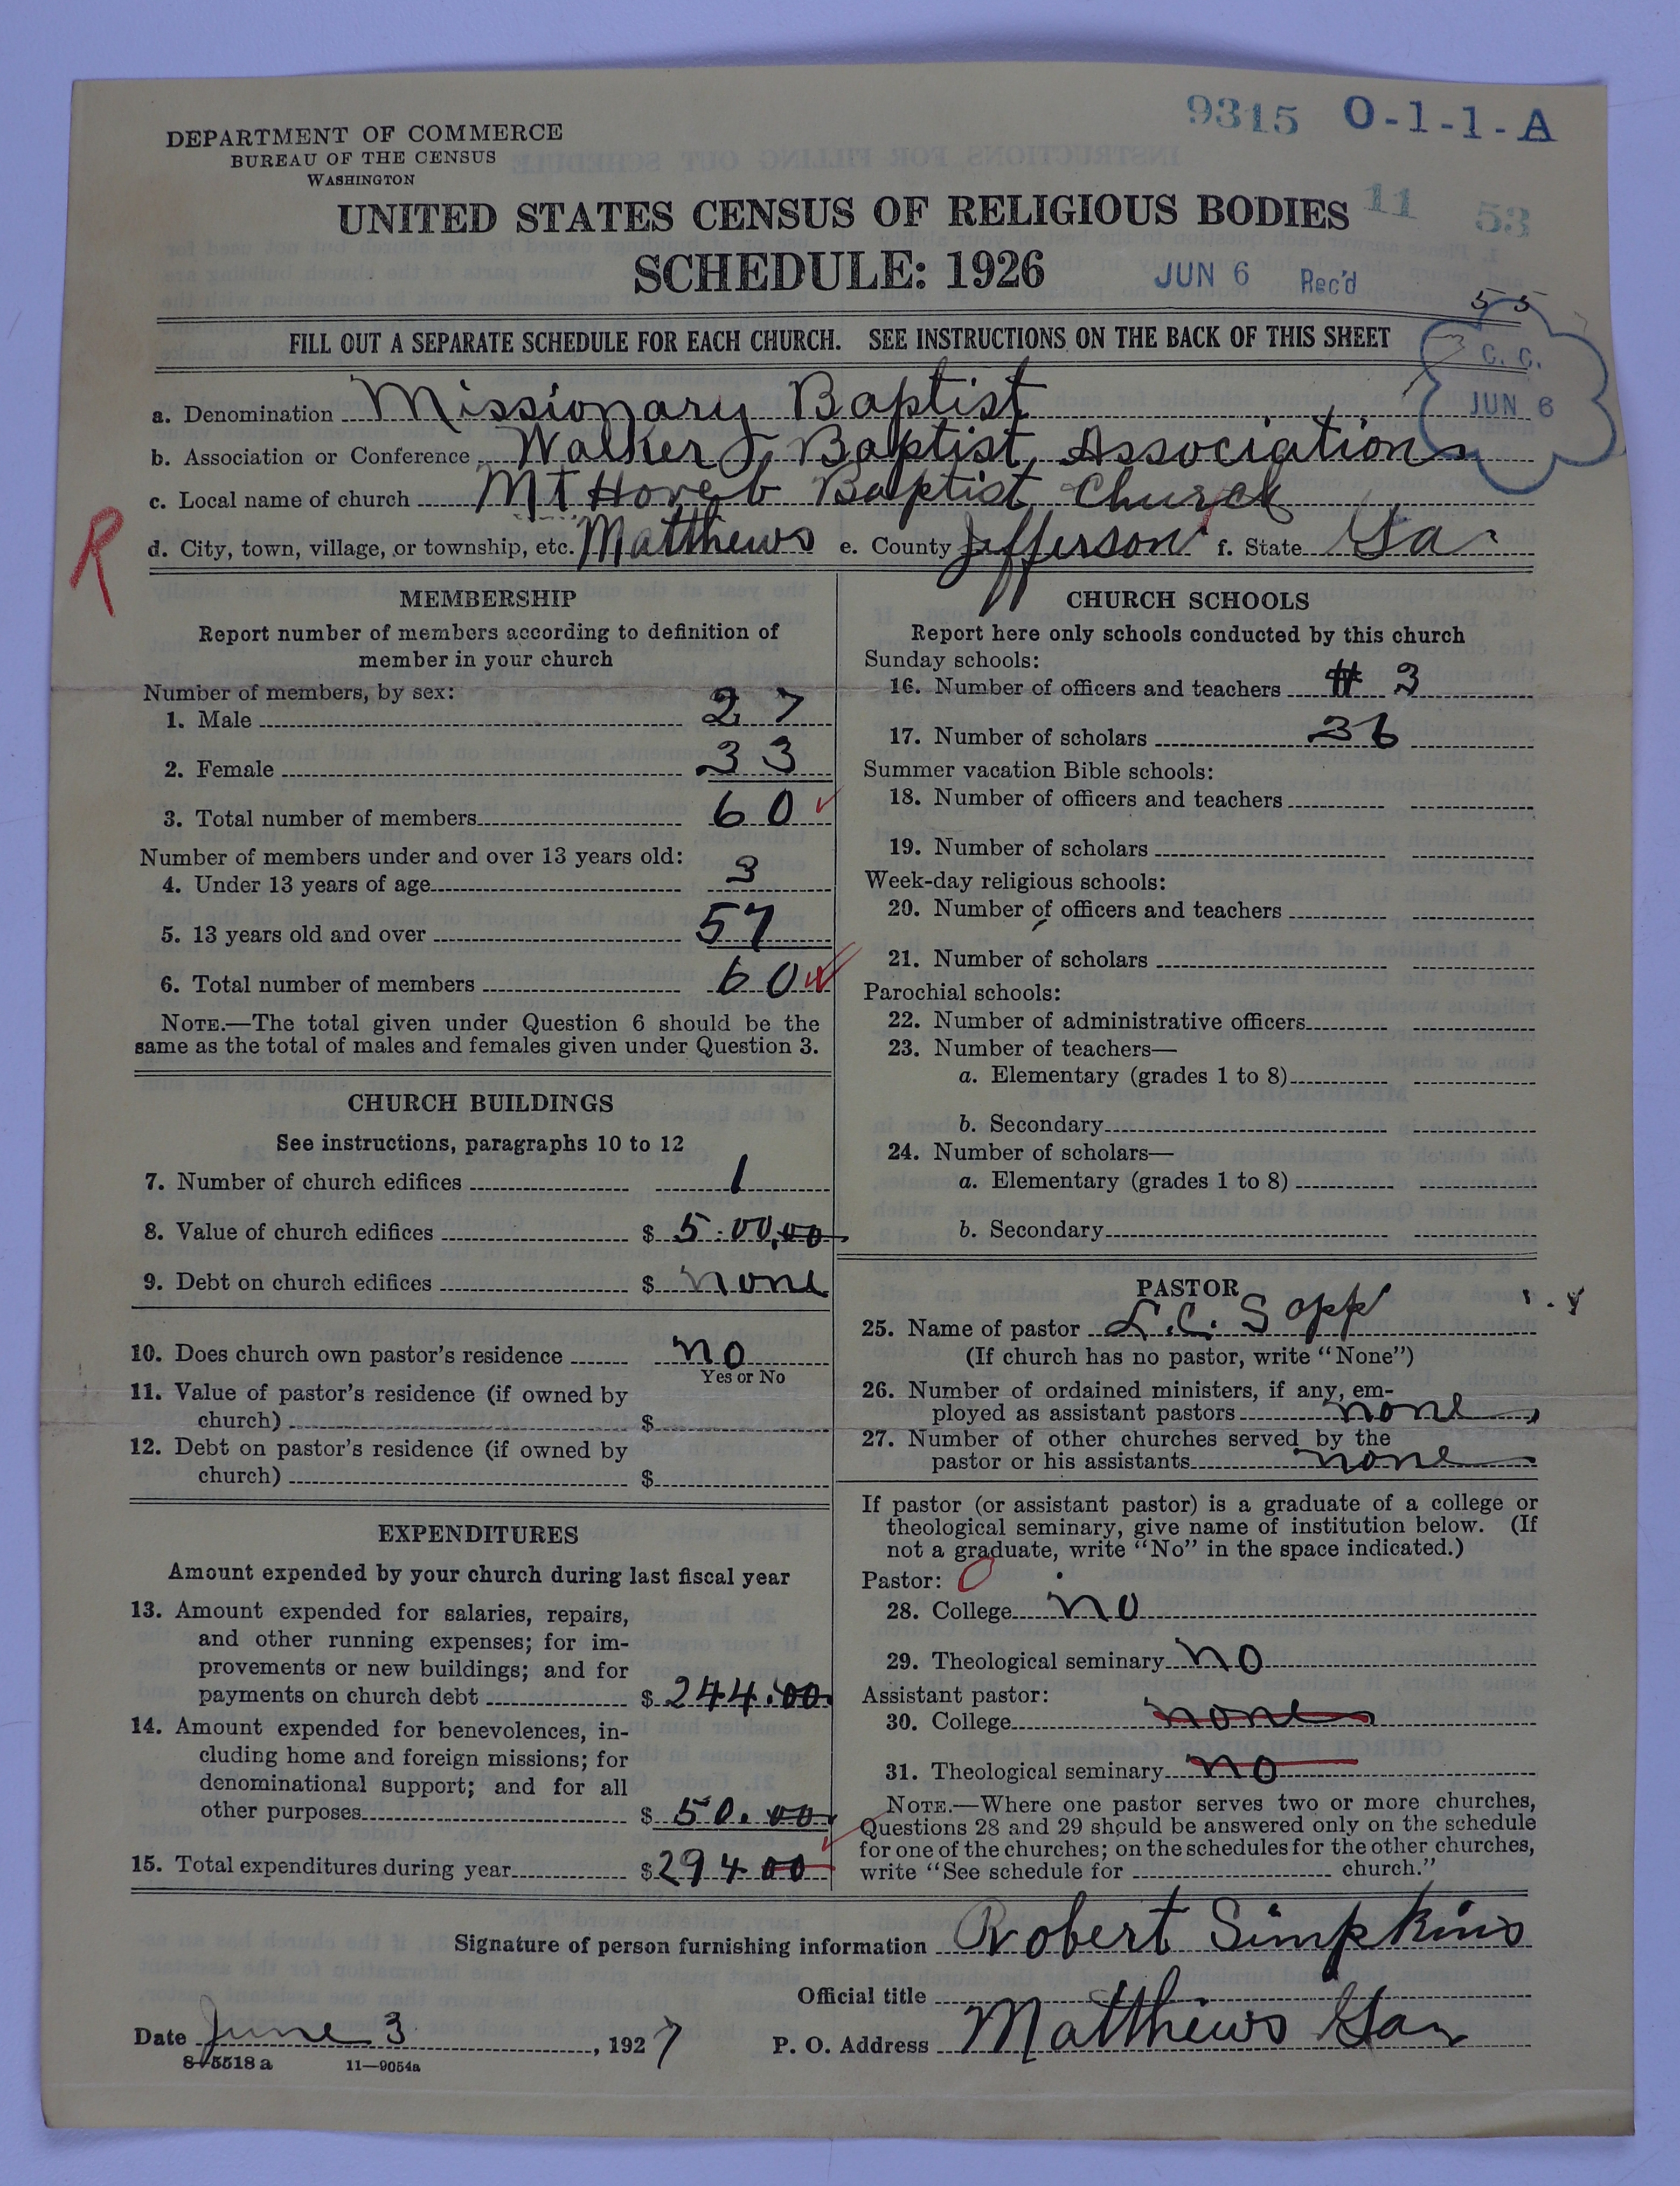 9315 O-1-1-A
DEPARTMENT OF COMMERCE
BUREAU OF THE CENSUS
WASHINGTON
UNITED STATES CENSUS OF RELIGIOUS BODIES 11 53
SCHEDULE: 1926 JUN 6 Rec'd
55
FILL OUT A SEPARATE SCHEDULE FOR EACH CHURCH. SEE INSTRUCTIONS ON THE BACK OF THIS SHEET
C. C.
JUN 6
a. Denomination Missionary Baptist
b. Association or Conference Walker Baptist Association
c. Local name of church Mt Horeb Baptist Church
R
d. City, town, village, or township, etc. Matthews e. County Jefferson f. State Ga
MEMBERSHIP
Report number of members according to definition of
member in your church
Number of members, by sex:
1. Male 27
2. Female 33
3. Total number of members 60
Number of members under and over 13 years old:
4. Under 13 years of age 3
5. 13 years old and over 57
6. Total number of members 60
NOTE.—The total given under Question 6 should be the
same as the total of males and females given under Question 3.
CHURCH BUILDINGS
See instructions, paragraphs 10 to 12
7. Number of church edifices 1
8. Value of church edifices $ 5.00,00
9. Debt on church edifices $ none
10. Does church own pastor's residence no
Yes or No
11. Value of pastor's residence (if owned by
church) $
12. Debt on pastor's residence (if owned by
church) $
EXPENDITURES
Amount expended by your church during last fiscal year
13. Amount expended for salaries, repairs,
and other running expenses; for im-
provements or new buildings; and for
payments on church debt $ 244.00
14. Amount expended for benevolences, in-
cluding home and foreign missions; for
denominational support; and for all
other purposes $ 50.00
15. Total expenditures during year $ 294 00
CHURCH SCHOOLS
Report here only schools conducted by this church
Sunday schools:
16. Number of officers and teachers # 3
17. Number of scholars 36
Summer vacation Bible schools:
18. Number of officers and teachers
19. Number of scholars
Week-day religious schools:
20. Number of officers and teachers
21. Number of scholars
Parochial schools:
22. Number of administrative officers
23. Number of teachers—
a. Elementary (grades 1 to 8)
b. Secondary
24. Number of scholars—
a. Elementary (grades 1 to 8)
b. Secondary
PASTOR
25. Name of pastor L.C. Sapp
(If church has no pastor, write "None")
26. Number of ordained ministers, if any, em-
ployed as assistant pastors none
27. Number of other churches served by the
pastor or his assistants none
If pastor (or assistant pastor) is a graduate of a college or
theological seminary, give name of institution below. (If
not a graduate, write "No" in the space indicated.)
Pastor: 0
28. College no
29. Theological seminary no
Assistant pastor:
30. College none
31. Theological seminary no
NOTE.—Where one pastor serves two or more churches,
Questions 28 and 29 should be answered only on the schedule
for one of the churches; on the schedules for the other churches,
write "See schedule for church."
Signature of person furnishing information Robert Simpkins
Official title
Date June 3, 1927 P. O. Address Matthews Ga
8-5518 a 11—9054a